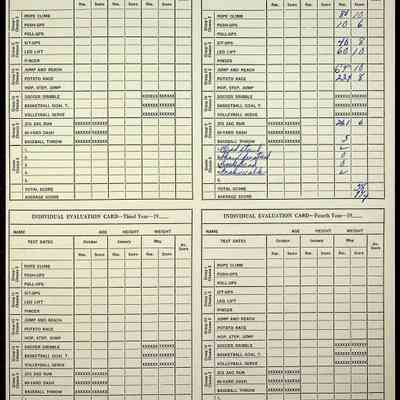 Rec. Score Rec. Score Rec. Score
ROPE CLIMB
PUSH-UPS
PULL-UPS
SIT-UPS
LEG LIFT
PINCER
JUMP AND REACH
POTATO RACE
HOP, STEP, JUMP
SOCCER DRIBBLE XXXXXX XXXXXX
BASKETBALL GOAL T. XXXXXX XXXXXX
VOLLEYBALL SERVE XXXXXX XXXXXX
ZIG ZAG RUN XXXXXX XXXXXX
50-YARD DASH XXXXXX XXXXXX
BASEBALL THROW XXXXXX XXXXXX
TOTAL SCORE
AVERAGE SCORE
Rec. Score Rec. Score Rec. Score
ROPE CLIMB 10
PUSH-UPS 10 6
PULL-UPS
SIT-UPS 40 8
LEG LIFT 60 10
PINCER
JUMP AND REACH 10
POTATO RACE 8
HOP, STEP, JUMP
SOCCER DRIBBLE XXXXXX XXXXXX
BASKETBALL GOAL T. XXXXXX XXXXXX
VOLLEYBALL SERVE XXXXXX XXXXXX
ZIG ZAG RUN XXXXXX XXXXXX 6
50-YARD DASH XXXXXX XXXXXX
BASEBALL THROW XXXXXX XXXXXX 5
TOTAL SCORE
AVERAGE SCORE
INDIVIDUAL EVALUATION CARD—Third Year—19
NAME AGE HEIGHT WEIGHT
TEST DATES October January May Av. Score
Rec. Score Rec. Score Rec. Score
ROPE CLIMB
PUSH-UPS
PULL-UPS
SIT-UPS
LEG LIFT
PINCER
JUMP AND REACH
POTATO RACE
HOP, STEP, JUMP
SOCCER DRIBBLE XXXXXX XXXXXX
BASKETBALL GOAL T. XXXXXX XXXXXX
VOLLEYBALL SERVE XXXXXX XXXXXX
ZIG ZAG RUN XXXXXX XXXXXX
50-YARD DASH XXXXXX XXXXXX
BASEBALL THROW XXXXXX XXXXXX
INDIVIDUAL EVALUATION CARD—Fourth Year—19
NAME AGE HEIGHT WEIGHT
TEST DATES October January May Av. Score
Rec. Score Rec. Score Rec. Score
ROPE CLIMB
PUSH-UPS
PULL-UPS
SIT-UPS
LEG LIFT
PINCER
JUMP AND REACH
POTATO RACE
HOP, STEP, JUMP
SOCCER DRIBBLE XXXXXX XXXXXX
BASKETBALL GOAL T. XXXXXX XXXXXX
VOLLEYBALL SERVE XXXXXX XXXXXX
ZIG ZAG RUN XXXXXX XXXXXX
50-YARD DASH XXXXXX XXXXXX
BASEBALL THROW XXXXXX XXXXXX